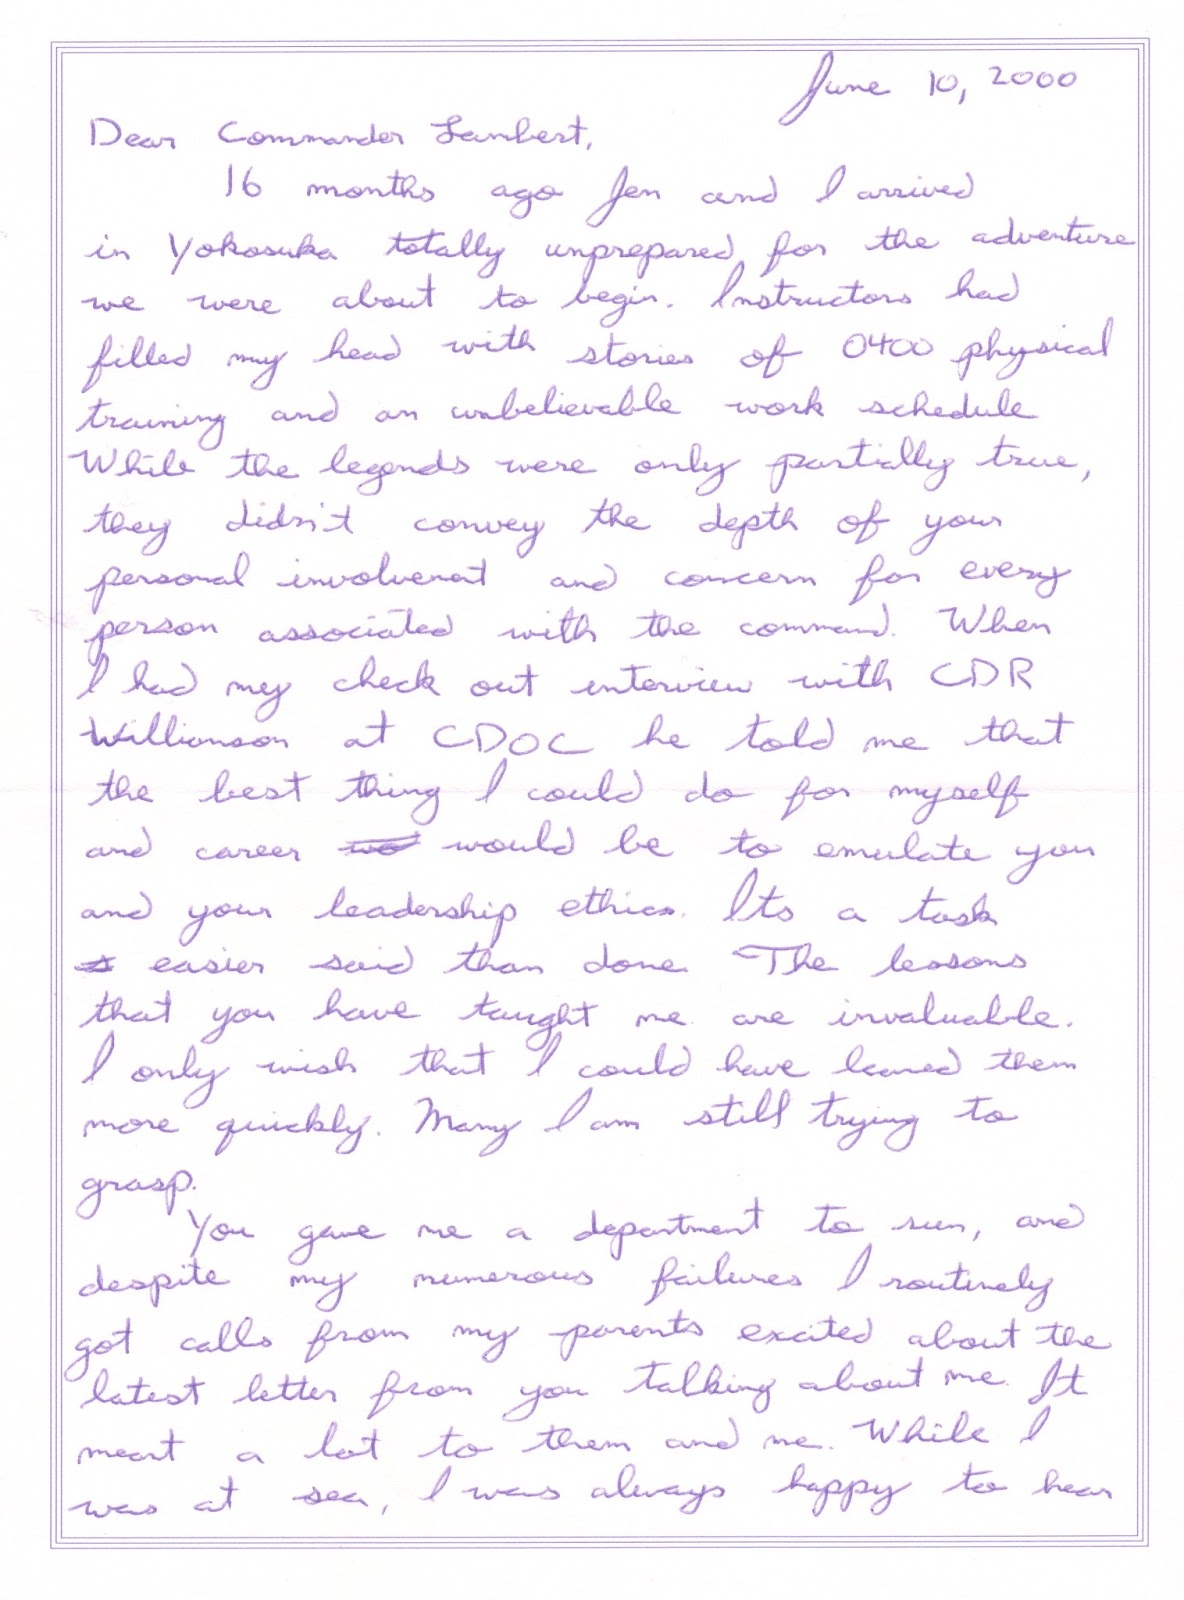 June 10, 2000
Dear Commander Lambert,
16 months ago Jen and I arrived
in Yokosuka totally unprepared for the adventure
we were about to begin. Instructors had
filled my head with stories of 0400 physical
training and an unbelievable work schedule
While the legends were only partially true,
they didn't convey the depth of your
personal involvement and concern for every
person associated with the command. When
I had my check out interview with CDR
Williamson at CDOC he told me that
the best thing I could do for myself
and career wo would be to emulate you
and your leadership ethics. Its a task
easier said than done. The lessons
that you have taught me are invaluable.
I only wish that I could have learned them
more quickly. Many I am still trying to
grasp.
You gave me a department to run, and
despite my numerous failures I routinely
got calls from my parents excited about the
latest letter from you talking about me. It
meant a lot to them and me. While I
was at sea, I was always happy to hear